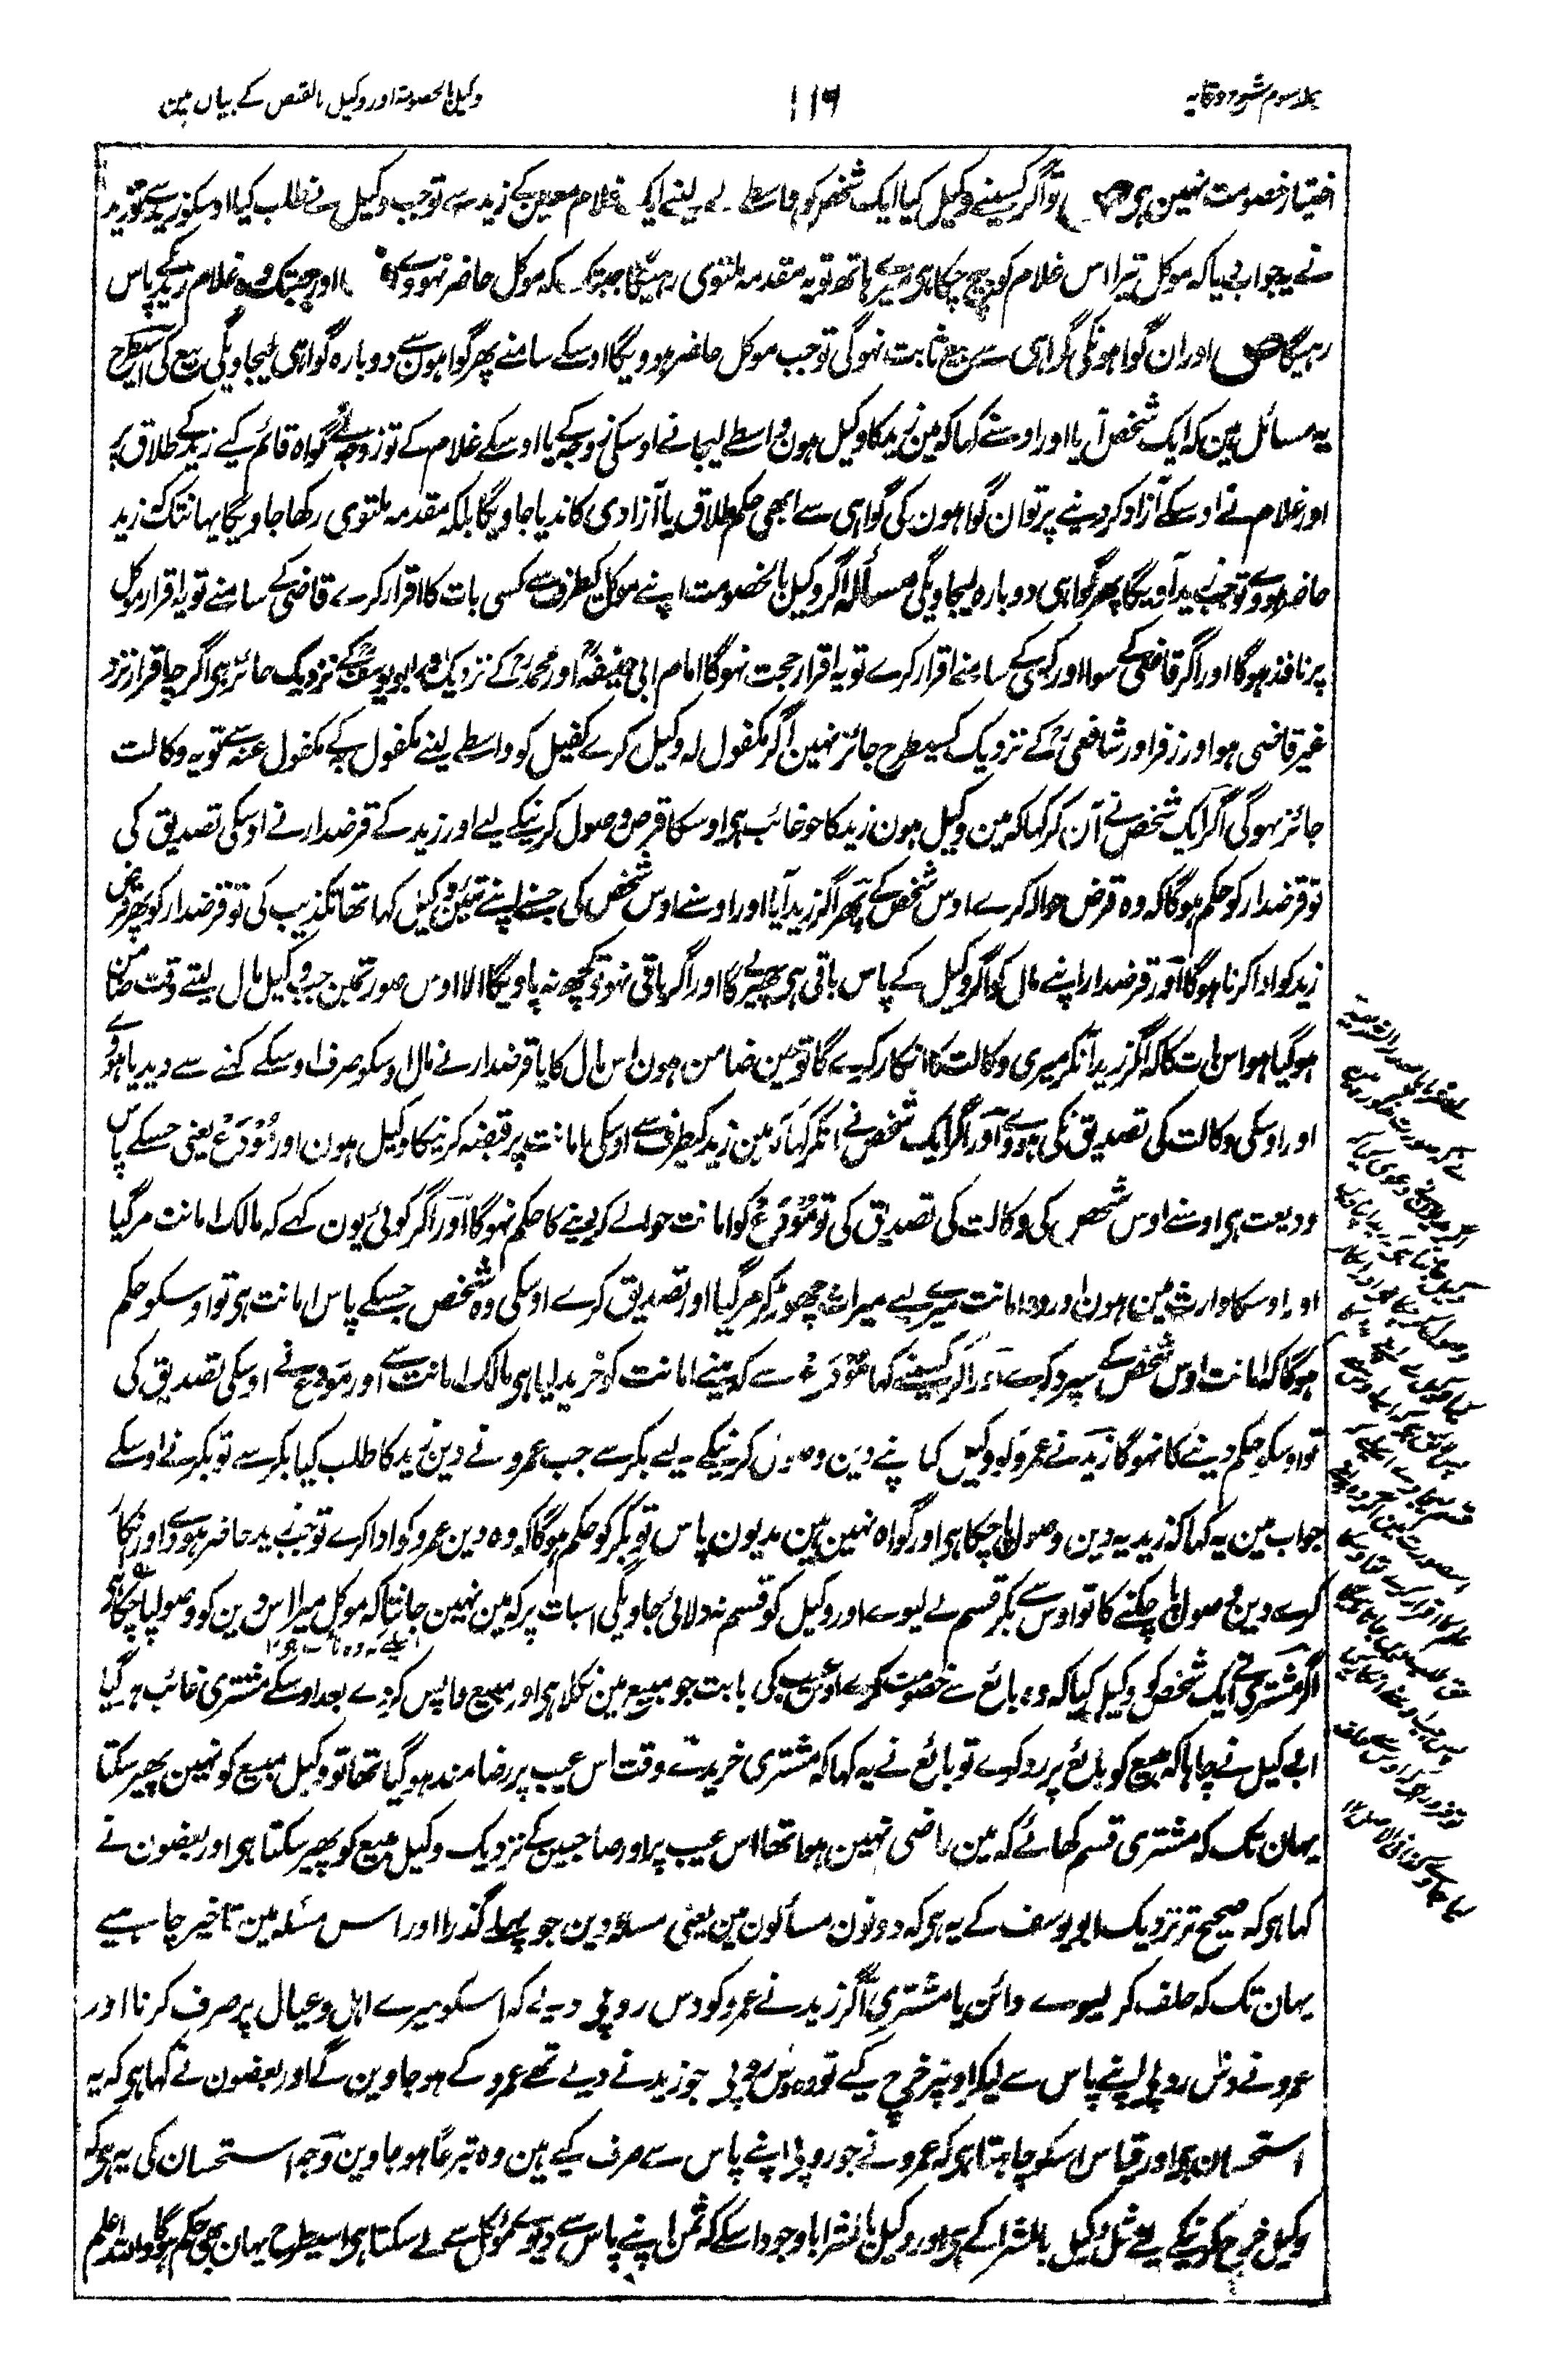 جلد سوم شرح وقایہ
۱۱۶
وکیل بالخصومۃ اور وکیل بالقبض کے بیان مین
اختیار خصومت نہین ہی ص تو اگر کسینے وکیل کیا ایک شخص کو واسطے لے لینے ایک غلام معین کے زید سے تو جب وکیل نے طلب کیا اوسکو زید سے تو زید
نے یہ جواب دیا کہ موکل تیرا اس غلام کو بیچ چکا ہی میرے ہاتھ تو یہ مقدمہ ملتوی رہیگا جبتک کہ موکل حاضر نہووے ف اور جبتک وہ غلام زید کے پاس
رہیگا ص اور ان گواہونکی گواہی سے بیع ثابت نہوگی تو جب موکل حاضر ہوویگا اوسکے سامنے پھر گواہون سے دوبارہ گواہی لیجاویگی بیع کی اسیطرح
یہ مسائل ہین کہ ایک شخص آیا اور اوسنے کہا کہ مین زید کا وکیل ہون واسطے لیجانے اوسکی زوجہ کے یا اوسکے غلام کے تو زوجہ نے گواہ قائم کیے زید کے طلاق پر
اور غلام نے اوسکے آزاد کر دینے پر تو ان گواہون کی گواہی سے ابھی حکم طلاق یا آزادی کا ندیا جاویگا بلکہ مقدمہ ملتوی رکھا جاویگا یہانتک کہ زید
حاضر ہووے تو جب زید آویگا پھر گواہی دوبارہ لیجاویگی مسألہ اگر وکیل بالخصومت اپنے موکل کیطرف سے کسی بات کا اقرار کرے قاضی کے سامنے تو یہ اقرار موکل
پر نافذ ہوگا اور اگر قاضی کے سوا اور کسی کے سامنے اقرار کرے تو یہ اقرار حجت نہوگا امام ابی حنیفہؒ اور محمدؒ کے نزدیک اور ابو یوسفؒ کے نزدیک جائز ہی اگرچہ اقرار نزد
غیر قاضی ہو اور زفر اور شافعیؒ کے نزدیک کسیطرح جائز نہین اگر مکفول لہ وکیل کرے کفیل کو واسطے لینے مکفول بہ کے مکفول عنہ سے تو یہ وکالت
جائز نہوگی اگر ایک شخص نے آن کر کہا کہ مین وکیل ہون زید کا جو غائب ہی اوسکا قرض وصول کرنیکے لیے اور زید کے قرضدار نے اوسکی تصدیق کی
تو قرضدار کو حکم ہوگا کہ وہ قرض حوالہ کرے اوس شخص کے پھر اگر زید آیا اور اوسنے اوس شخص کی جسنے اپنے تئین وکیل کہا تھا تکذیب کی تو قرضدار کو پھر قرض
زید کو ادا کرنا ہوگا اور قرضدار اپنے مال کو اگر وکیل کے پاس باقی ہی پھیر لے گا اور اگر باقی نہو تو کچھ نہ پاویگا الا اوس صورتمین جب وکیل مال لیتے وقت ضامن
ہوگیا ہو اس بات کا کہ اگر زید آنکر میری وکالت کا انکار کرے گا تو مین ضامن ہون اس مال کا یا قرضدار نے مال اوسکو صرف اوسکے کہنے سے دیدیا ہووے
اور اوسکی وکالت کی تصدیق نکی ہووے اور اگر ایک شخص نے آنکر کہا کہ مین زید کیطرف سے اوسکی امانت پر قبضہ کرنیکا وکیل ہون اور مُوْدَع یعنی جسکے پاس
ودیعت ہی اوسنے اوس شخص کی وکالت کی تصدیق کی تو مُوْدَع کو امانت حوالے کر دینے کا حکم نہوگا اور اگر کوئی یون کہے کہ مالک امانت مر گیا
اور اوسکا وارث مین ہون اور وہ امانت میرے لیے میراث چھوڑ کر مر گیا اور تصدیق کرے اوسکی وہ شخص جسکے پاس امانت ہی تو اوسکو حکم
ہوگا کہ امانت اوس شخص کے سپرد کرے اور اگر کسینے کہا مُوْدَع سے کہ مینے امانت کو خرید لیا ہی مالک امانت سے اور مودع نے اوسکی تصدیق کی
تو اوسکو حکم دینے کا نہوگا زید نے عمرو کو وکیل کیا اپنے دین وصول کرنیکے لیے بکر سے جب عمرو نے دین زید کا طلب کیا بکر سے تو بکر نے اوسکے
جواب مین یہ کہا کہ زید یہ دین وصول پا چکا ہی اور گواہ نہین ہین مدیون پاس تو بکر کو حکم ہوگا کہ وہ دین عمرو کو ادا کرے تو جب زید حاضر ہووے اور انکار
کرے دین وصول پا چکنے کا تو اوس سے بکر قسم لے لیوے اور وکیل کو قسم نہ دلائی جاویگی اسبات پر کہ مین نہین جانتا کہ موکل میرا اس دین کو وصول پا چکا ہی
اسلیے کہ وہ نائب ہی ۱۲
اگر مشتری نے ایک شخص کو وکیل کیا کہ وہ بائع سے خصومت کرے اوس عیب کی بابت جو مبیع مین نکلا ہی اور مبیع واپس کر دے بعد اوسکے مشتری غائب ہو گیا
اب وکیل نے چاہا کہ مبیع کو بائع پر رد کرے تو بائع نے یہ کہا کہ مشتری خریدتے وقت اس عیب پر رضامند ہو گیا تھا تو وکیل مبیع کو نہین پھیر سکتا
یہان تک کہ مشتری قسم کھائے کہ مین راضی نہین ہوا تھا اس عیب پر اور صاحبین کے نزدیک وکیل مبیع کو پھیر سکتا ہی اور بعضون نے
کہا ہی کہ صحیح تر نزدیک ابو یوسف کے یہ ہی کہ دونون مسألون مین یعنی مسألہ دین جو پہلے گذرا اور اس مسئلہ مین تاخیر چاہیے
یہان تک کہ حلف کر لیوے دائن یا مشتری اگر زید نے عمرو کو دس روپے دیے کہ اسکو میرے اہل و عیال پر صرف کرنا اور
عمرو نے دس روپے اپنے پاس سے لیکر اونپر خرچ کیے تو وہ دس روپے جو زید نے دیے تھے عمرو کے ہو جاوین گے اور بعضون نے کہا ہی کہ یہ
استحسان ہی اور قیاس اسکو چاہتا ہی کہ عمرو نے جو روپے اپنے پاس سے صرف کیے ہین وہ تبرعاً ہو جاوین وجہ استحسان کی یہ ہی کہ
وکیل خرچ کرنیکے لیے مثل وکیل بالشرا کے ہی اور وکیل بالشرا باوجود اسکے کہ ثمن اپنے پاس سے دیوے موکل سے لے سکتا ہی اسیطرح یہان بھی حکم ہوگا واللہ اعلم